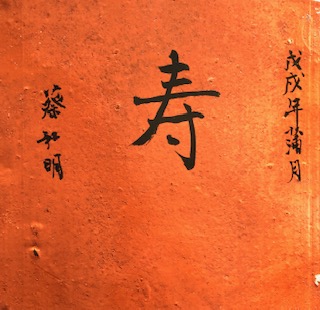 戊戌年蒲月
寿
蔡弘明